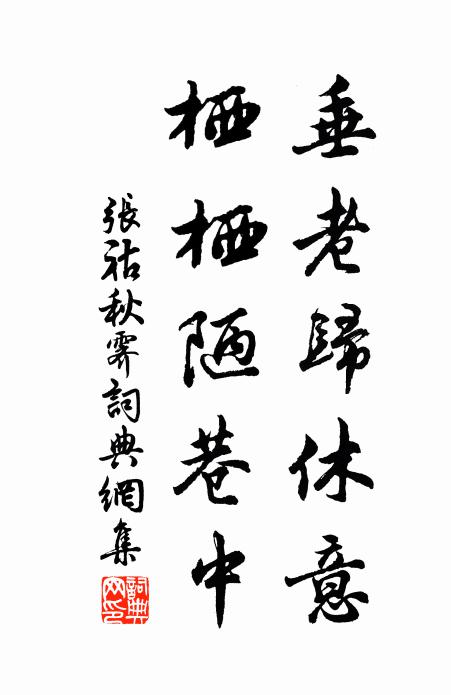 垂老歸休意
栖栖陋巷中
張祜秋霽詞典網集
詞典网印